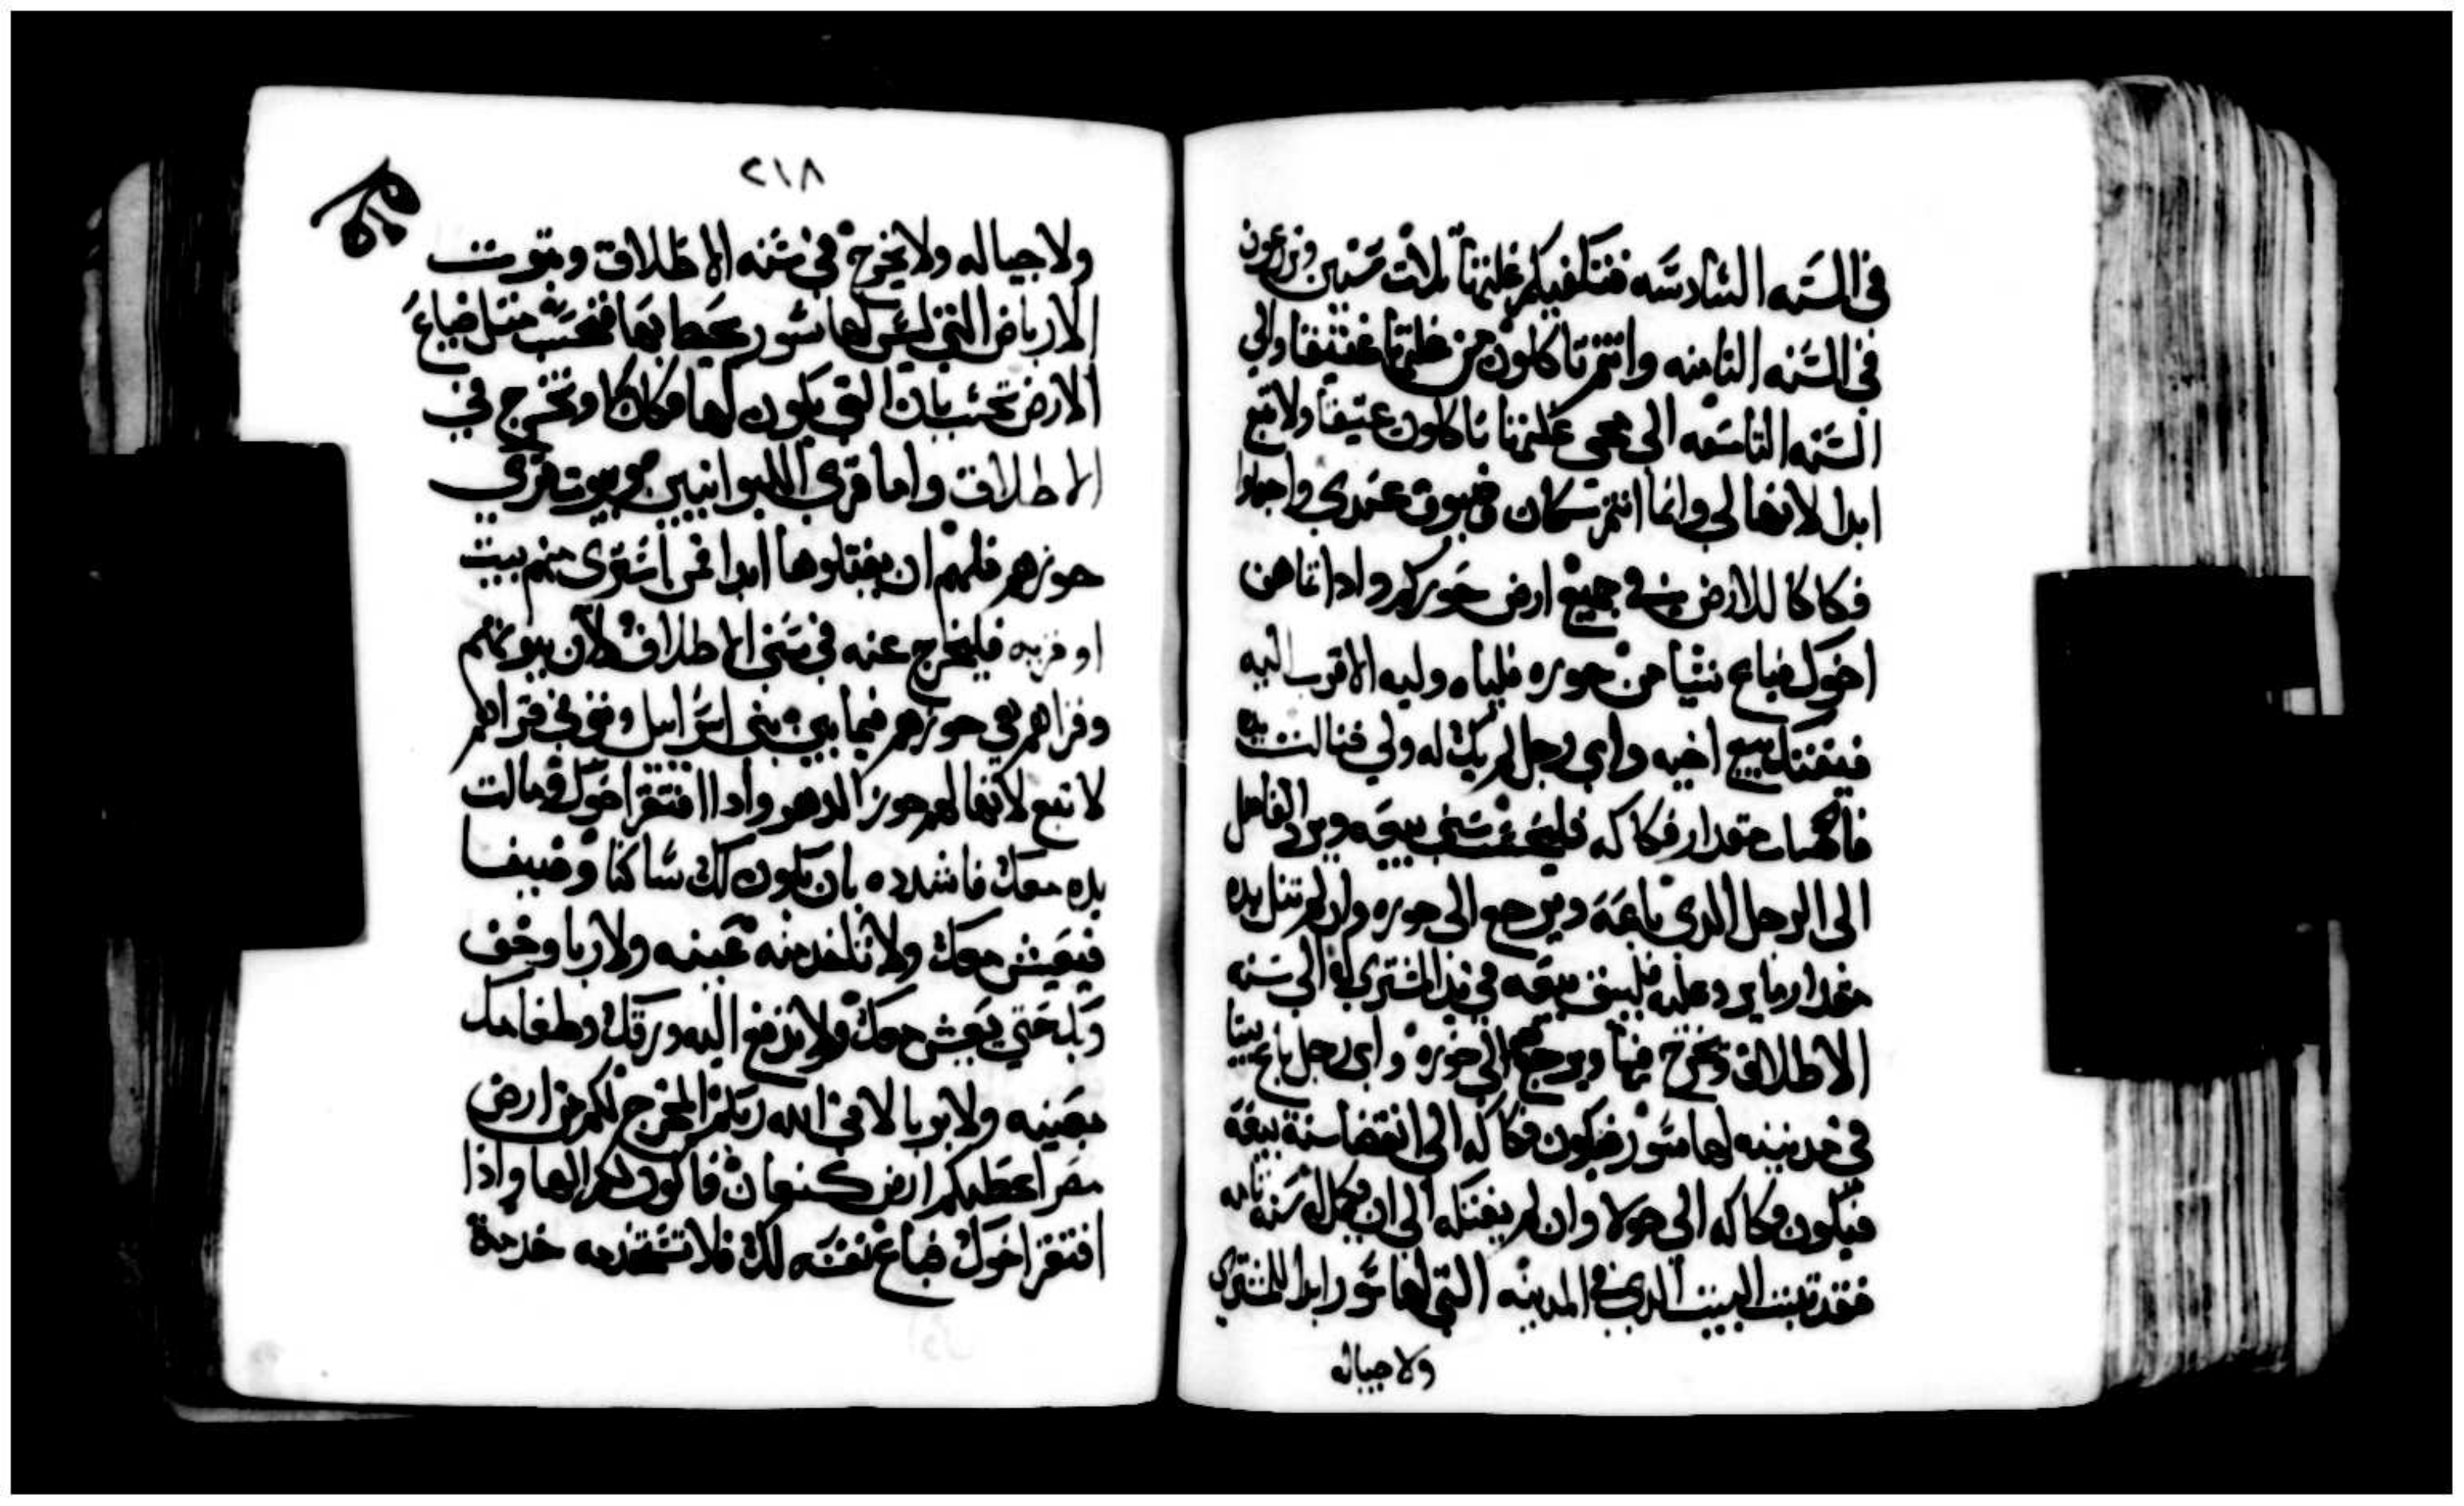 في السنه السادسه فتكفيكم غلتها تلات سنين وتزرعون
في السنه التامنه وانتم تاكلون من غلتها عتيقا والي
السنه التاسعه الى مجي غلتها تاكلون عتيقا ولا تبع
ابدا لانها لي وانما انتم سكان ضيوف عندي واجعلوا
فكاكا للارض في جميع ارض حوزكم وادا تماهن
اخوك فباع شيا من حوزه فلياه وليه الاقرب اليه
فيفتك بيع اخيه واي رجل لم يك له ولي فنالت يده
فاكتساب مقدار فكاكه فليحسب سني بيعه ويرد الفاضل
الى الرجل الدي باعه ويرجع الى حوزه وان لم تنل يده
مقدار ما يرد عليه فليبق بيعه في يد المشتري له الى سنه
الاطلاق وتخرج فيها ويرجع الى حوزه واي رجل باع بيتا
في مدينه لها سور فيكون فكاكه الى انقضا سنة بيعه
فيكون فكاكه الى حولا وان لم يفتكه الى ان يكمل له سنه تامه
فقد تبت البيت الدي في المدينه التي لها سور ابدا للمشتري
ولاجياله
٢١٨
ولاجياله ولا يخرج في سنه الاطلاق وبيوت
الارباض التي ليس لها سور يحيط بها فتحسب مثل ضياع
الارض تحسب بان التي يكون لها فكاكا وتخرج في
الاطلاق واما قرى الليوانيين وبيوت قرى
حوزهم فلهم ان يفتكوها ابدا فمن اشترى منهم بيت
او قريه فليخرج عنه في سني الاطلاق لان بيوتهم
وقراهم هي حوزهم فيما بين بني اسراييل وبقي في قراهم
لا تبع لانها لهم حوز الدهر وادا افتقر اخوك ومالت
يده معك فاشدده بان يكون لك ساكنا وضيفا
فيعيش معك ولا تاخد منه عينه ولا ربا وخف
ربك حتي يعيش معك ولا تدفع اليه ورقك وطعامك
بعينه ولا بربا لاني الله ربكم المخرج لكم من ارض
مصر اعطيكم ارض كنعان فاكون لكم الها وإذا
افتقر اخوك فباع نفسه لك فلا تستخدمه خدمة